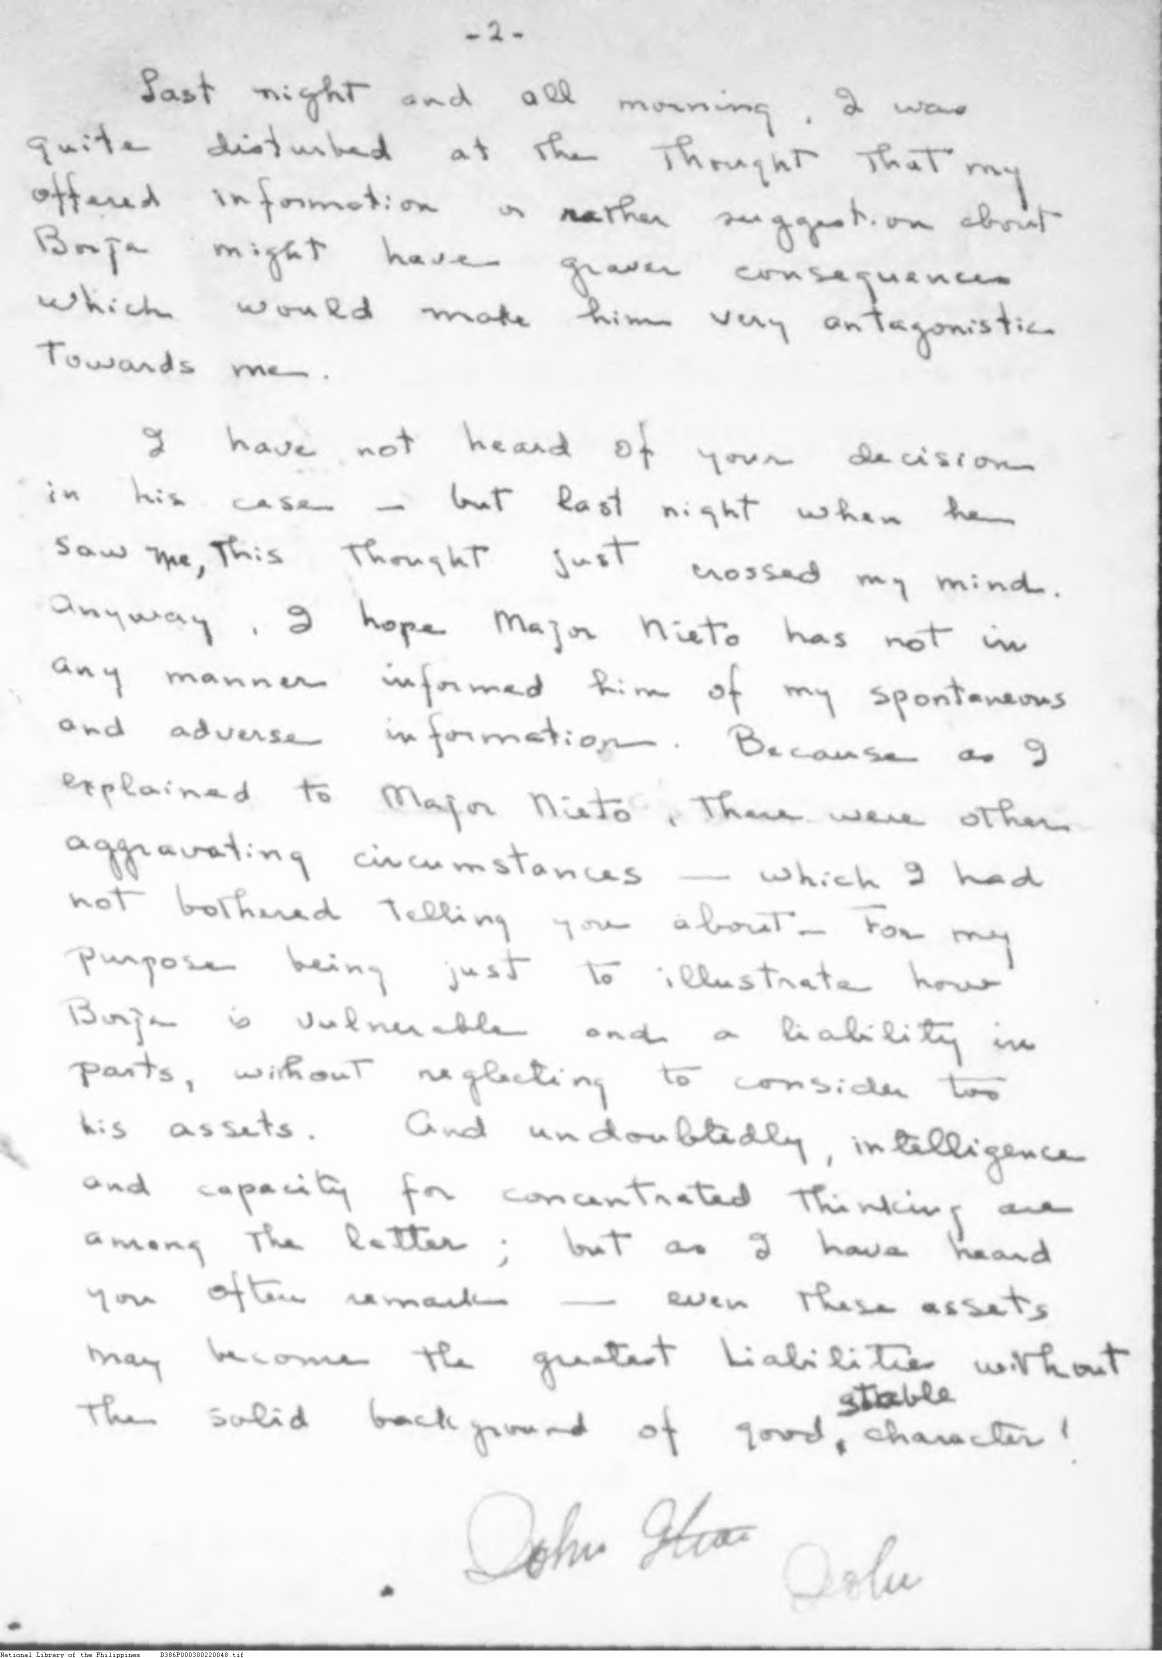 - 2 -
Last night and all morning, I was
quite disturbed at the thought that my
offered information or rather suggestion about
Borja might have graver consequences
which would make him very antagonistic
towards me.
I have not heard of your decision
in his case — but last night when he
saw me, this thought just crossed my mind.
Anyway, I hope Major Nieto has not in
any manner informed him of my spontaneous
and adverse information. Because as I
explained to Major Nieto, there were other
aggravating circumstances — which I had
not bothered telling you about — For my
purpose being just to illustrate how
Borja is vulnerable and a liability in
parts, without neglecting to consider too
his assets. And undoubtedly, intelligence
and capacity for concentrated thinking are
among the latter; but as I have heard
you often remark — even these assets
may become the greatest liabilities without
stable
the solid background of good, character!
John
John
National Library of the Philippines D386P000380220048.tif